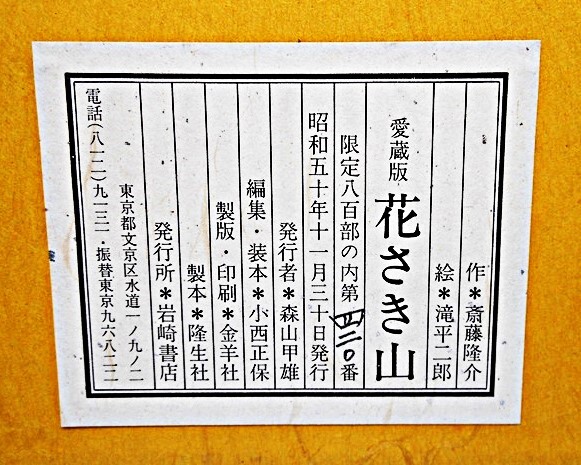 作＊斎藤隆介
絵＊滝平二郎
愛蔵版 花さき山
限定八百部の内第四三〇番
昭和五十年十一月三十日発行
発行者＊森山甲雄
編集・装本＊小西正保
製版・印刷＊金羊社
製本＊隆生社
発行所＊岩崎書店
東京都文京区水道一ノ九ノ二
電話(八一二)九一三一・振替東京九六八二二